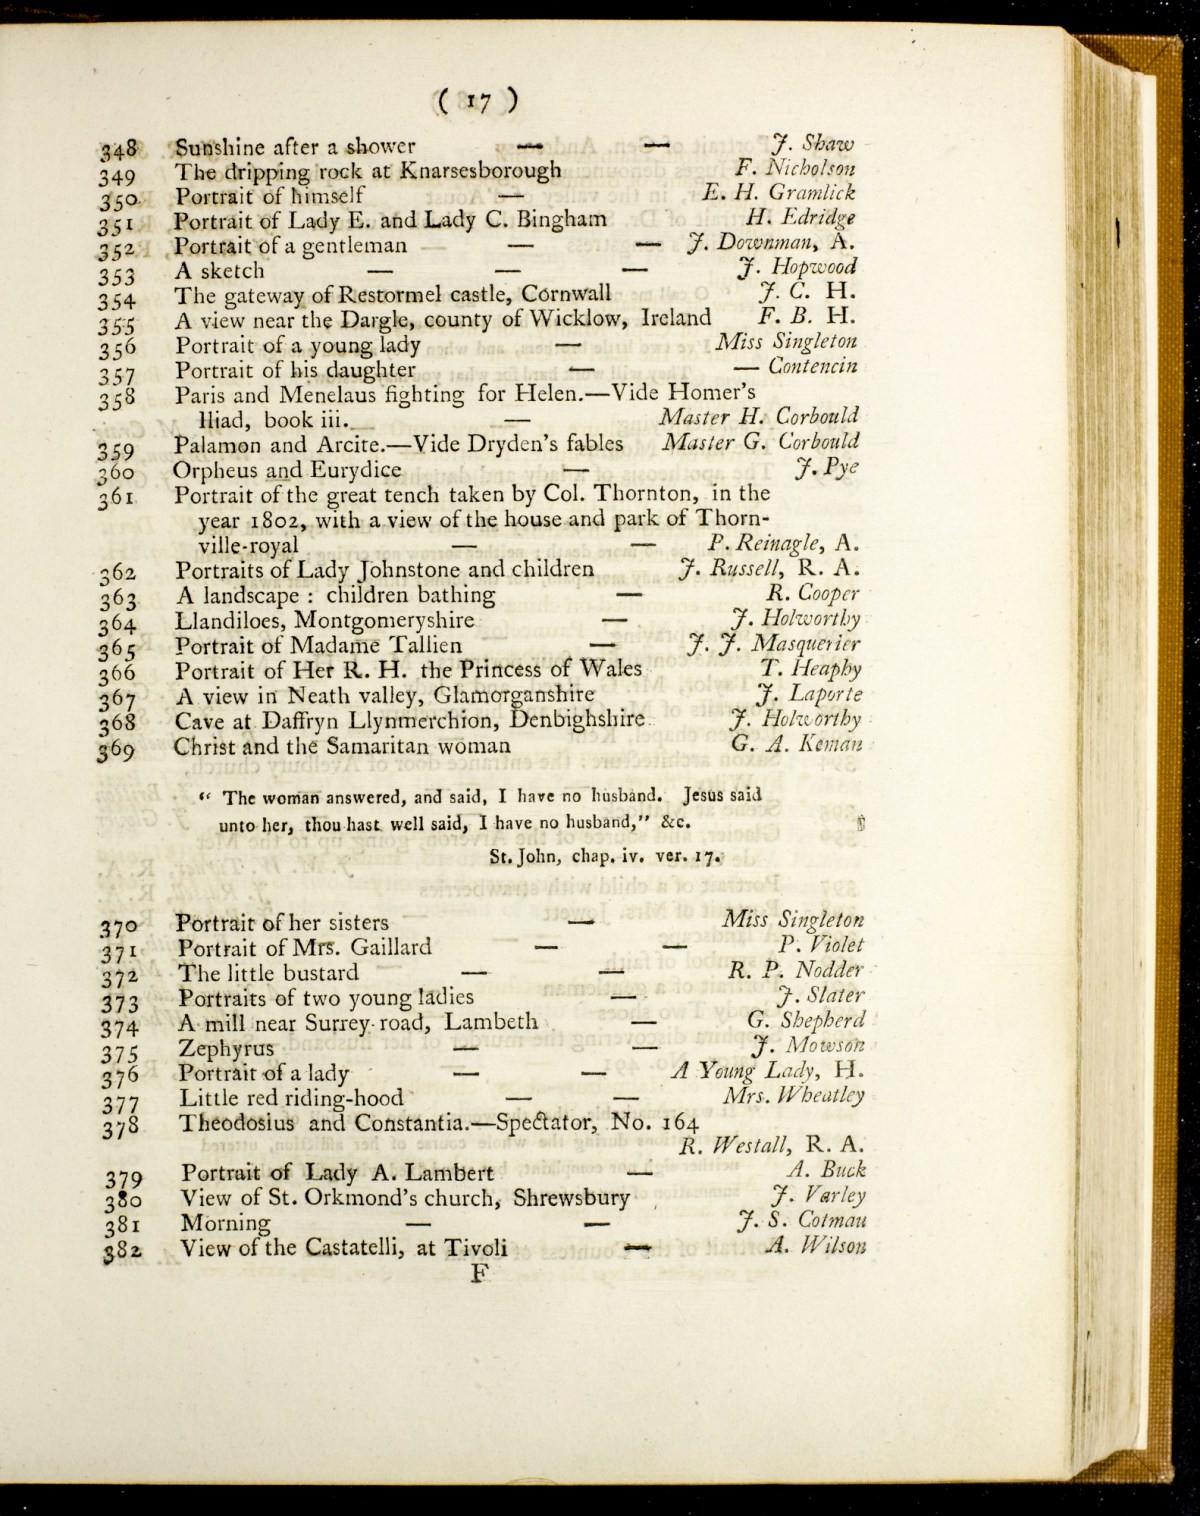 ( 17 )
348 Sunshine after a shower — — J. Shaw
349 The dripping rock at Knarsesborough F. Nicholson
350 Portrait of himself — E. H. Gramlick
351 Portrait of Lady E. and Lady C. Bingham H. Edridge
352 Portrait of a gentleman — — J. Downman, A.
353 A sketch — — — J. Hopwood
354 The gateway of Restormel castle, Cornwall J. C. H.
355 A view near the Dargle, county of Wicklow, Ireland F. B. H.
356 Portrait of a young lady — Miss Singleton
357 Portrait of his daughter — — Contencin
358 Paris and Menelaus fighting for Helen.—Vide Homer's
Iliad, book iii. — Master H. Corbould
359 Palamon and Arcite.—Vide Dryden's fables Master G. Corbould
360 Orpheus and Eurydice — J. Pye
361 Portrait of the great tench taken by Col. Thornton, in the
year 1802, with a view of the house and park of Thorn-
ville-royal — — P. Reinagle, A.
362 Portraits of Lady Johnstone and children J. Russell, R. A.
363 A landscape : children bathing — R. Cooper
364 Llandiloes, Montgomeryshire — J. Holworthy
365 Portrait of Madame Tallien — J. J. Masquerier
366 Portrait of Her R. H. the Princess of Wales T. Heaphy
367 A view in Neath valley, Glamorganshire J. Laporte
368 Cave at Daffryn Llynmerchion, Denbighshire J. Holworthy
369 Christ and the Samaritan woman G. A. Keman
“ The woman answered, and said, I have no husband. Jesus said
unto her, thou hast well said, I have no husband,” &c.
St. John, chap. iv. ver. 17.
370 Portrait of her sisters — Miss Singleton
371 Portrait of Mrs. Gaillard — — P. Violet
372 The little bustard — — R. P. Nodder
373 Portraits of two young ladies — J. Slater
374 A mill near Surrey-road, Lambeth — G. Shepherd
375 Zephyrus — — J. Mowson
376 Portrait of a lady — — A Young Lady, H.
377 Little red riding-hood — — Mrs. Wheatley
378 Theodosius and Constantia.—Spectator, No. 164
R. Westall, R. A.
379 Portrait of Lady A. Lambert — A. Buck
380 View of St. Orkmond's church, Shrewsbury J. Varley
381 Morning — — J. S. Cotmau
382 View of the Castatelli, at Tivoli — A. Wilson
F